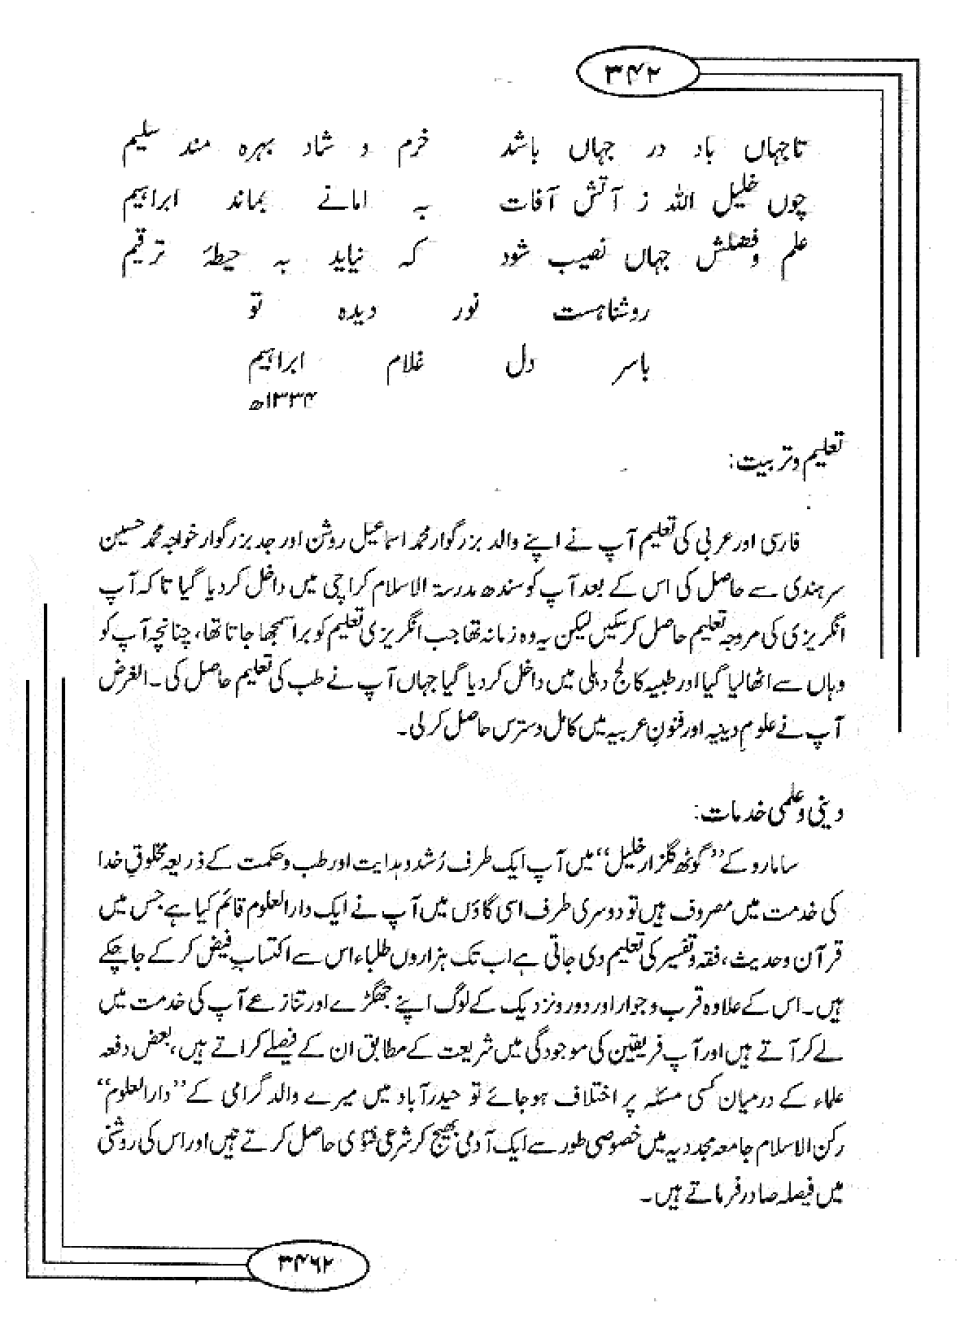 ۳۴۲
تاجہاں باد در جہاں باشد خرم و شاد بہرہ مند سلیم
چوں خلیل اللہ ز آتش آفات بہ امانے بماند ابراہیم
علم وفضلش جہاں نصیب شود کہ نیاید بہ حیطۂ ترقیم
روشناہست نور دیدہ تو
باسر دل غلام ابراہیم
۱۳۳۴ھ
تعلیم وتربیت:
فارسی اور عربی کی تعلیم آپ نے اپنے والد بزرگوار محمد اسماعیل روشن اور جد بزرگوار خواجہ محمد حسین
سرہندی سے حاصل کی اس کے بعد آپ کو سندھ مدرسۃ الاسلام کراچی میں داخل کردیا گیا تاکہ آپ
انگریزی کی مروجہ تعلیم حاصل کرسکیں لیکن یہ وہ زمانہ تھا جب انگریزی تعلیم کو برا سمجھا جاتا تھا، چنانچہ آپ کو
وہاں سے اٹھالیا گیا اور طبیہ کالج دہلی میں داخل کردیا گیا جہاں آپ نے طب کی تعلیم حاصل کی۔ الغرض
آپ نے علومِ دینیہ اور فنونِ عربیہ میں کامل دسترس حاصل کرلی۔
دینی وعلمی خدمات:
سامارو کے ”گوٹھ گلزار خلیل“ میں آپ ایک طرف رُشد وہدایت اور طب وحکمت کے ذریعہ مخلوقِ خدا
کی خدمت میں مصروف ہیں تو دوسری طرف اسی گاؤں میں آپ نے ایک دارالعلوم قائم کیا ہے جس میں
قرآن وحدیث، فقہ وتفسیر کی تعلیم دی جاتی ہے اب تک ہزاروں طلباء اس سے اکتسابِ فیض کرکے جاچکے
ہیں۔ اس کے علاوہ قرب وجوار اور دور ونزدیک کے لوگ اپنے جھگڑے اور تنازعے آپ کی خدمت میں
لے کر آتے ہیں اور آپ فریقین کی موجودگی میں شریعت کے مطابق ان کے فیصلے کراتے ہیں، بعض دفعہ
علماء کے درمیان کسی مسئلہ پر اختلاف ہوجائے تو حیدرآباد میں میرے والد گرامی کے ”دارالعلوم“
رکن الاسلام جامعہ مجددیہ میں خصوصی طور سے ایک آدمی بھیج کر شرعی فتویٰ حاصل کرتے ہیں اور اس کی روشنی
میں فیصلہ صادر فرماتے ہیں۔
۳۴۶۲